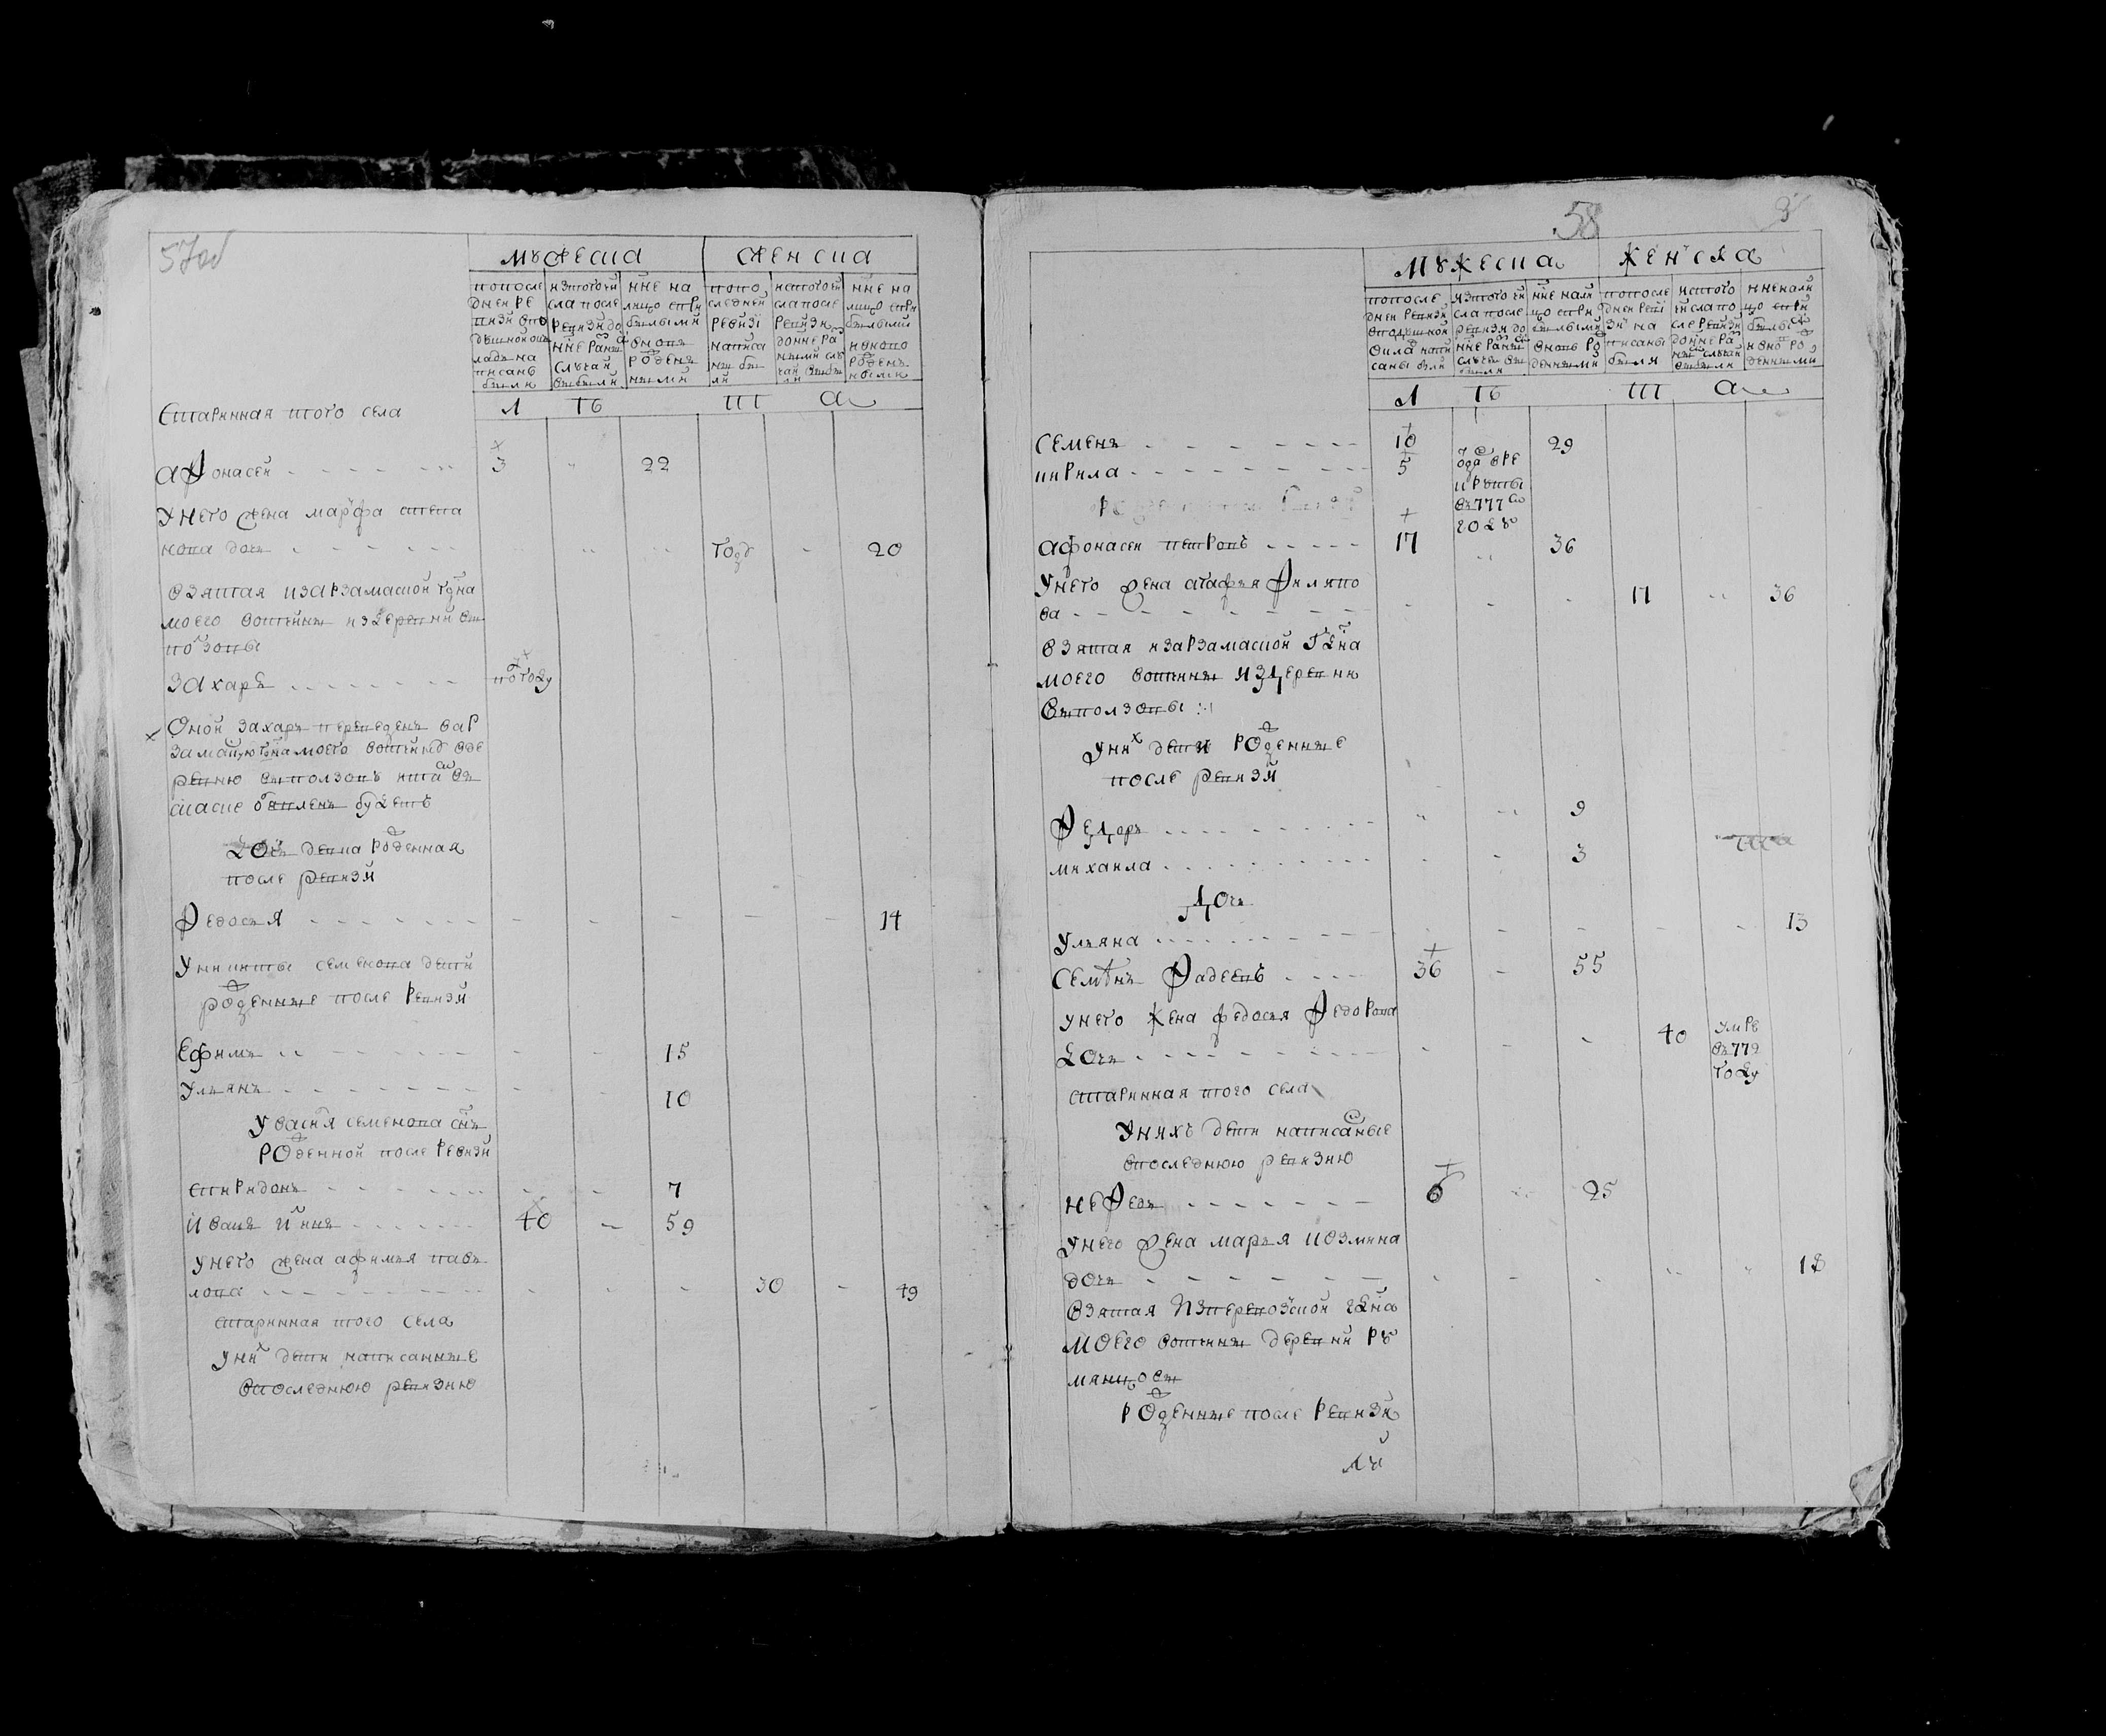 57об
мужеска женска
попосле дней ревизи вподушной окладъ написаны были
изтого числа после ревизи до ныне разными случаи выбыли
ныне на лицо сприбылыми вновь рожденными
попоследней ревизi написаны были
ис того числа после ревизи до ныне разными случаи выбыли
ныне на лицо сприбылыми и вновь рожденными
лѣта
старинная того села
афонасеи 3 22
У него жена марфа степа
нова дочь году 20
взятая изарзамаской
моего вотчины из деревни вы
ползовы
Захаръ
Оной захаръ переведенъ вар
замаскую моего вотчины вде
ревню выползовъ въ
скаске объявленъ будетъ
дочь рожденная
после ревизи
Федосья 14
У никиты семенова дети
рожденные после ревизи
Ефимъ 15
Ульянъ 10
У васи семенова сынъ
рожденной после ревизи
спиридонъ 7
Иванъ 40 59
У него жена афимья павъ
лова 30 49
старинная того села
У них дети написанные
впоследнюю ревизию
58
мужеска женска
попосле дней ревизи вподушной окладъ написаны были
изтого числа после ревизи до ныне разными случаи выбыли
ныне налицо сприбылыми вновь рожденными
попосле дней ревизи написаны были
ис того числа после ревизи до ныне разными случаи выбыли
ныне налицо сприбылыми и вновь рожденными
лѣта
Семенъ 10 29
кирила 5 отда вре
круты
въ 777
году
афонасеи петровъ 17 36
У него жена агафья Филипо
ва 17 36
взятая изарзамаской
моего вотчины из деревни
Выползовы
У них дети рожденные
после ревизи
Федоръ 9
михаила 3
дочь
Ульяна 13
Семенъ Фадеевъ 36 55
У него жена федосья Федорова
дочь 40 умре
въ 772
году
старинная того села
У нихъ дети написаные
впоследнюю ревизию
неФедъ 6 25
У него жена марья козмина
дочь 18
Взятая
моего вотчины деревни ру
мянцовы
рожденные после ревизи